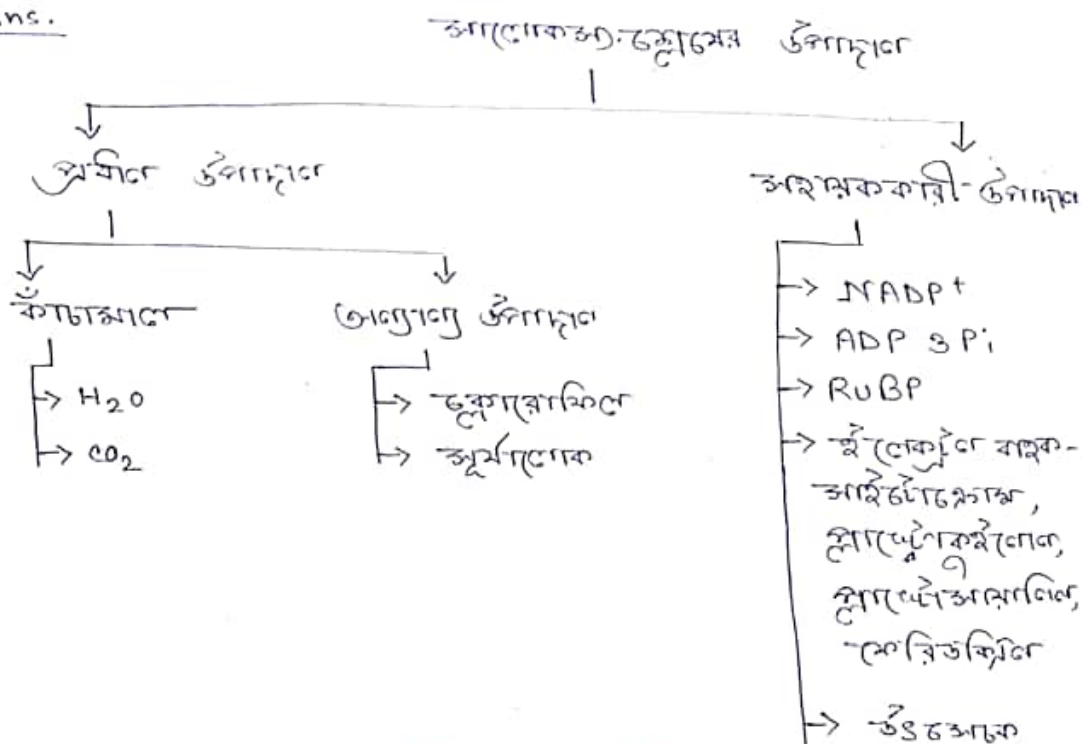 Ans.
সালোকসংশ্লেষের উপাদান
প্রধান উপাদান
সহায়ককারী উপাদান
কাঁচামাল
→ H2O
→ CO2
অন্যান্য উপাদান
→ ক্লোরোফিল
→ সূর্যালোক
→ NADP+
→ ADP ও Pi
→ RUBP
→ ইলেকট্রন বাহক-
সাইটোক্রোম,
প্লাস্টোকুইনোন,
প্লাস্টোসায়ানিন,
ফেরিডক্সিন
→ উৎসেচক